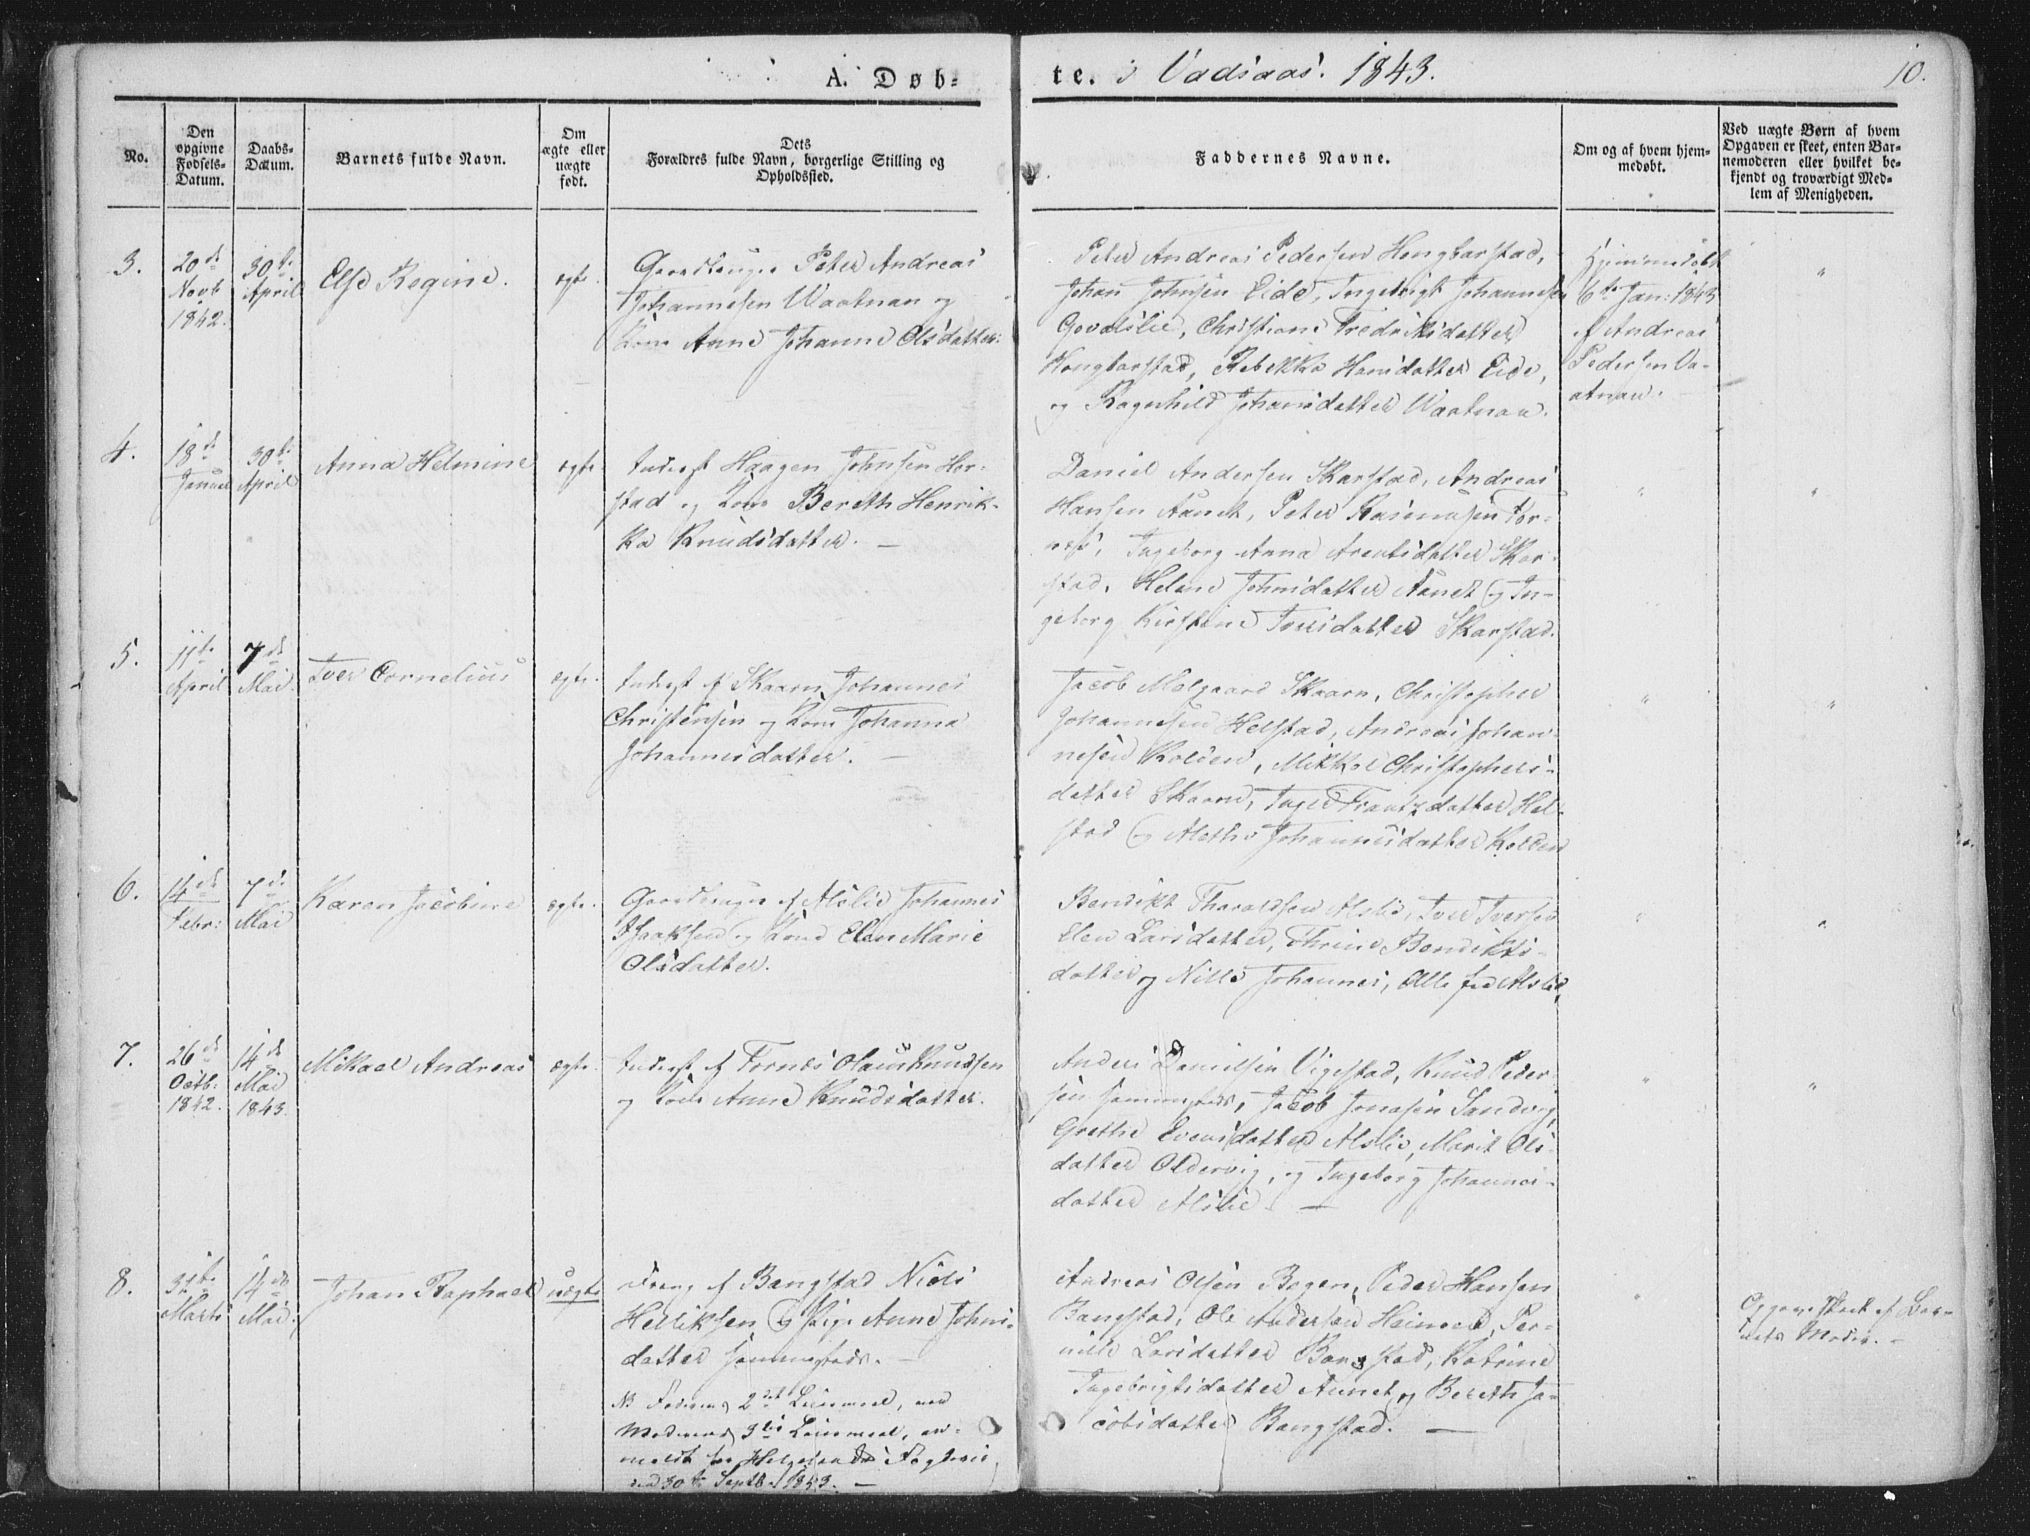 A. Døb-
te. i Vadsaas. 1843.
10.
No.
Den opgivne Fødsels-Datum.
Daabs-Datum.
Barnets fulde Navn.
Om ægte eller uægte født.
Dets
Forældres fulde Navn, borgerlige Stilling og
Opholdssted.
Faddernes Navne.
Om og af hvem hjem-
medøbt.
Ved uægte Børn af hvem
Opgaven er skeet, enten Bar-
nemoderen eller hvilket be-
kjendt og troværdigt Med-
lem af Menigheden.
3.
20de
Novb
1842.
30te
April
Else Regine.
ægte.
Gaardbruger Peter Andreas
Johannesen Vaatnan og
Kone Anne Johanne Olsdatter.
Peter Andreas Pedersen Hongbarstad,
Johan Johnsen Eide, Ingebrigt Johannesen
Christiane Fredriksdatter
Hongbarstad, Rebekka Hansdatter Eide,
og Ragnhild Johansdatter Waatnan.
Hjemmedøbt
6te Jan: 1843
af Andreas
Pedersen Va-
atnan.
"
4.
18de
Januar
30te
April
Anna Helmine
ægte.
Inderst Haagen Johnsen Hor-
stad og Kone Bereth Henrik-
ka Knudsdatter. —
Daniel Andersen Skarstad, Andreas
Hansen Aunet, Peter Rasmusen For-
næs, Ingeborg Anna Arentsdatter Skar-
stad, Helene Johnsdatter Aunet og In-
geborg Kirstine Iversdatter Skarstad.
"
"
5.
11te
April
7de
Mai.
Iver Cornelius
ægte.
Inderst af Skaarn Johannes
Christensen og Kone Johanna
Johannesdatter. —
Jacob Melgaard Skaarn, Christopher
Johannesen Helstad, Andreas Johan-
nesen Kolden, Mikkal Christophers-
datter Skaarn, Inger Frantzdatter Hel-
stad og Alethe Johannesdatter Kolden
"
"
6.
14de
Febr:
7de
Mai
Karen Jacobine
ægte.
Gaardbruger af Alslie Johannes
Isaksen og Kone Elen Marie
Olsdatter.
Bendikt Tharaldsen Alslie, Iver Iversen
Elen Larsdatter, Thrine Bendikts-
datter og Nille Johannes, Alle fra Alslie,
"
"
7.
26de
Octb:
1842.
14de
Mai
1843.
Mikael Andreas
ægte.
Inderst af Fornæs Olaus Knudsen
og Kone Anne Knudsdatter.
Anders Danielsen Vigestad, Knud Peder-
sen sammesteds, Jacob Jonasen Sandvig,
Grethe Evensdatter Alslie, Marit Ols-
datter Oldervig, og Ingeborg Johannes-
datter Alslie. —
"
"
8.
31te
Marts
14de
Mai.
Johan Raphael
uægte
Dreng af Bangstad Niels
Henriksen og Pige Anne Johns-
datter sammesteds. —
NB Faderens 2det Leiermaal, med
Moderens 3die Leiermaal, an-
meldt for Helgelands Fogderie
den 30te Septb. 1843. —
Andreas Olsen Bogen, Peder Hansen
Bangstad, Ole Andersen Heimoen, Per-
nille Larsdatter Bangstad, Katrine
Ingebrigtsdatter Aunet og Bereth Ja-
cobsdatter Bangstad. —
"
Opgave skeet af Bar-
nets Moder. —